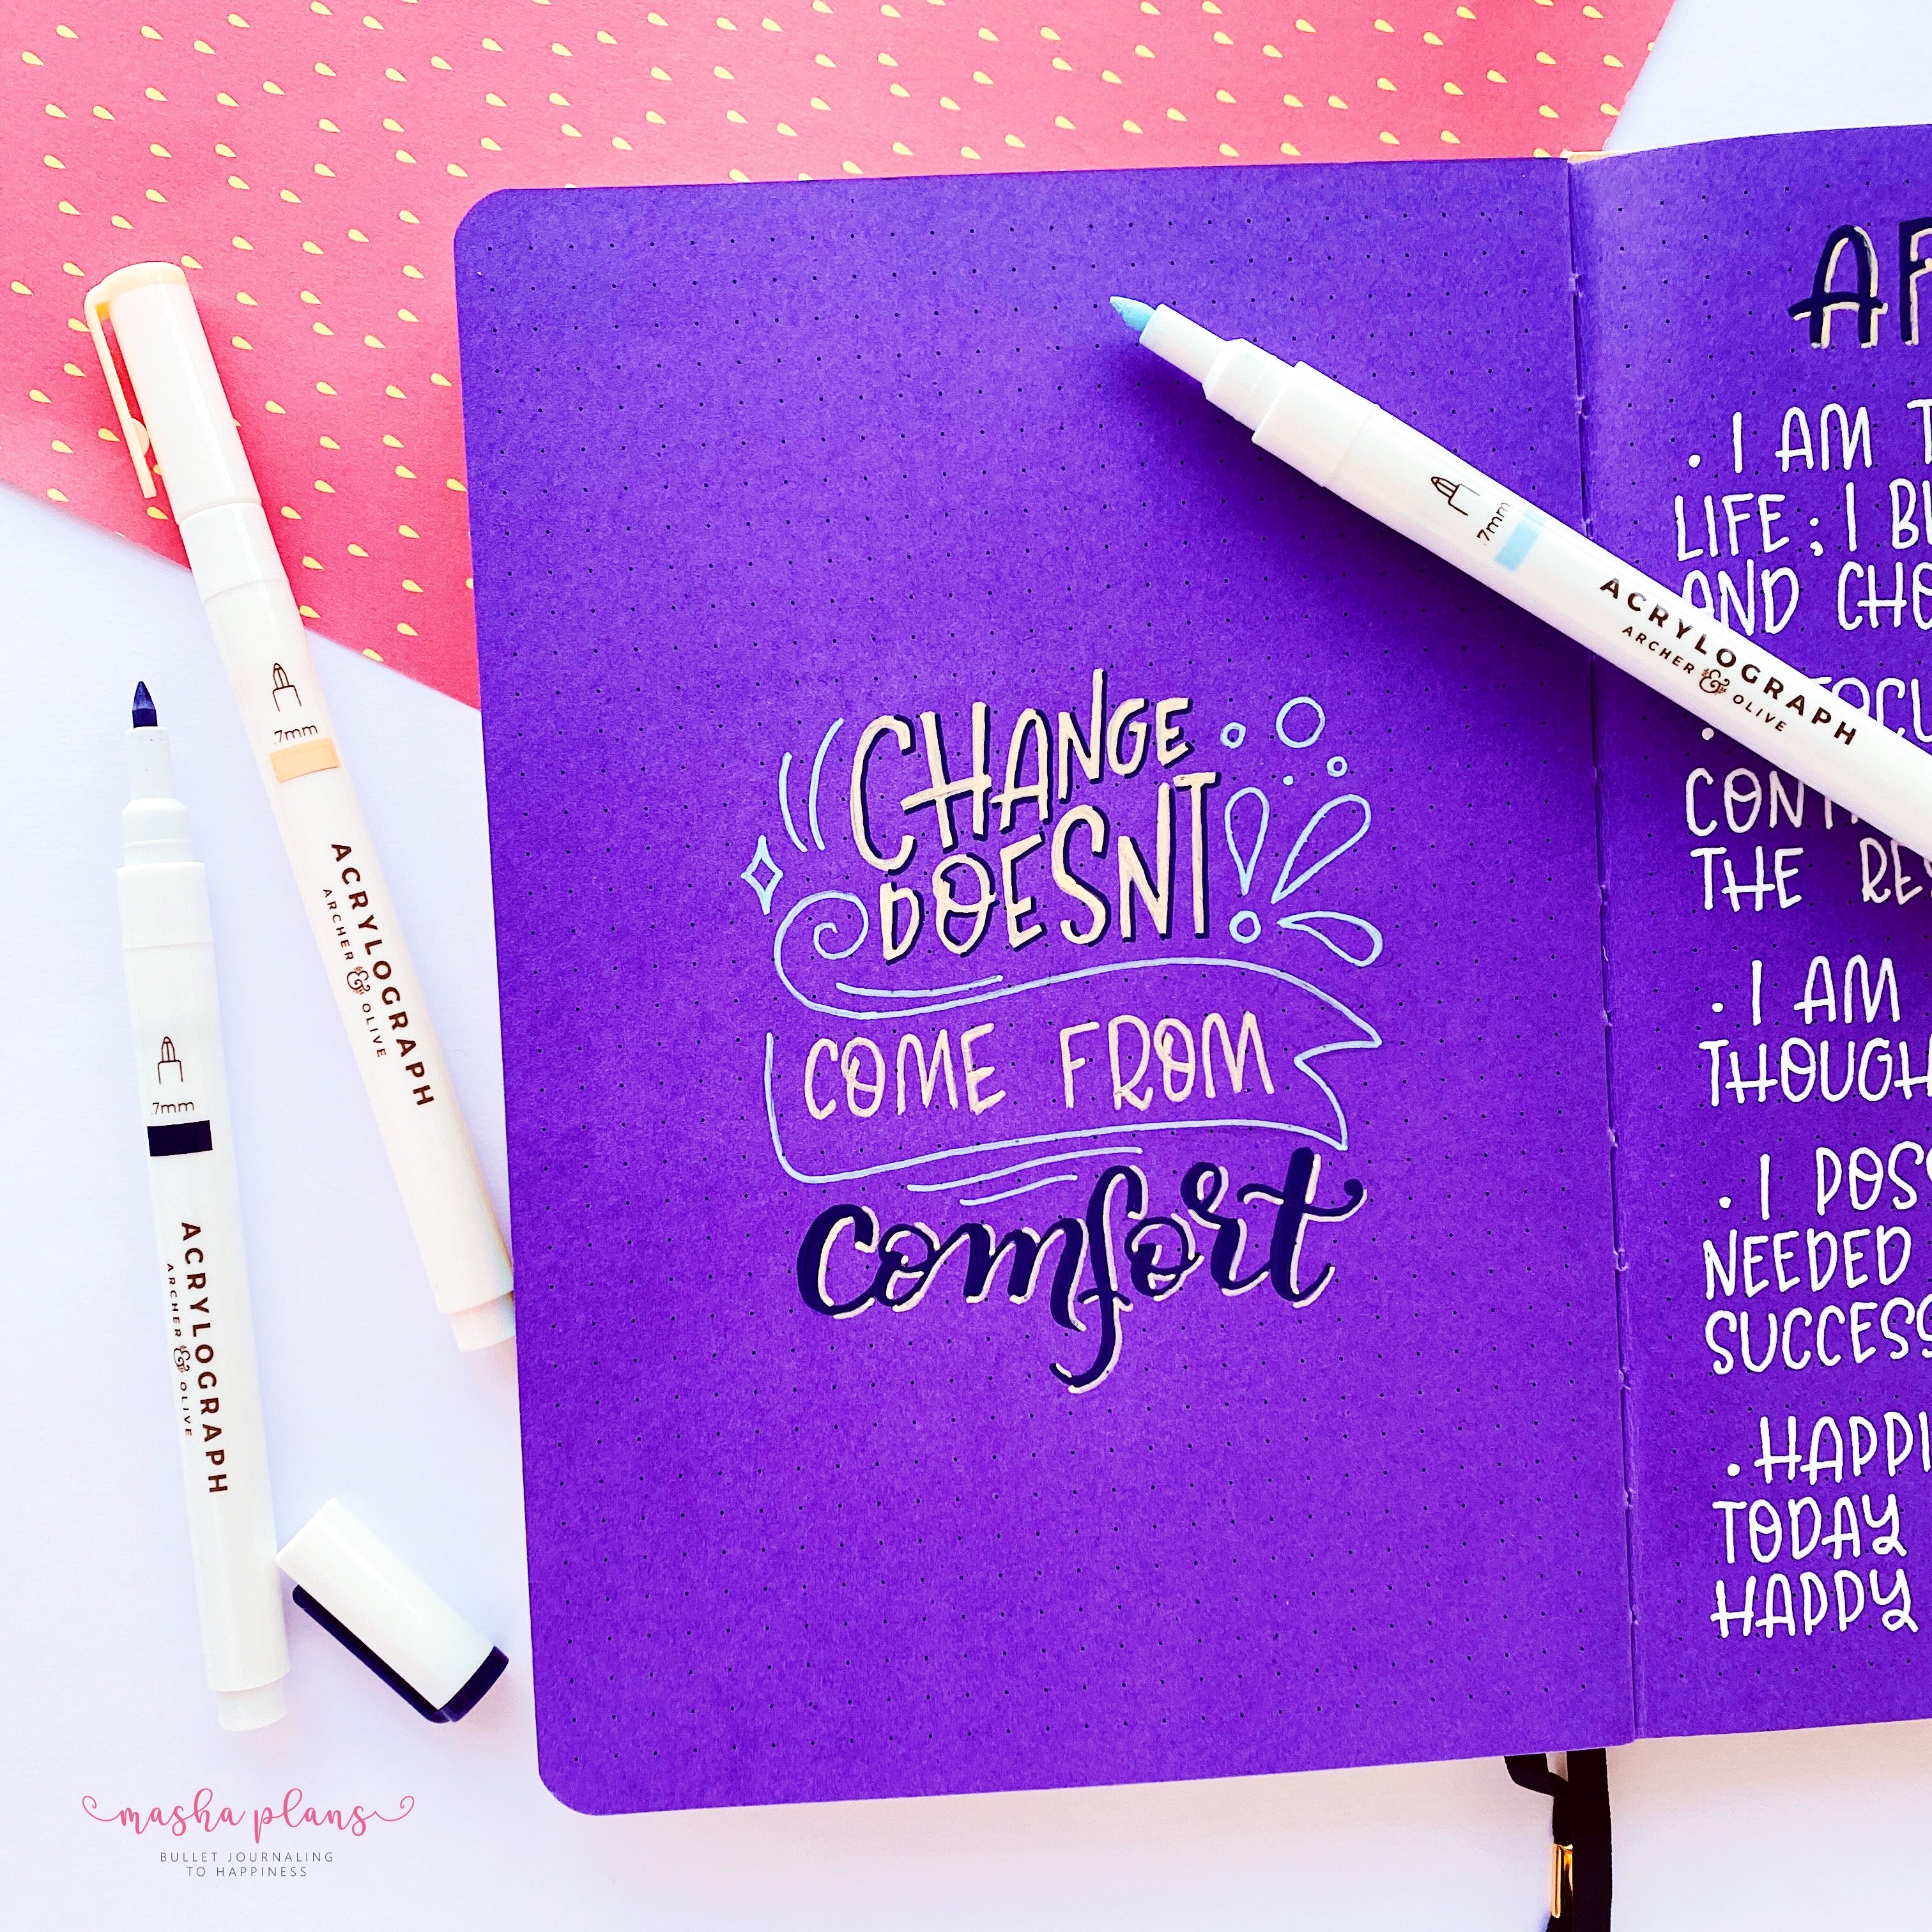 CHANGE
DOESNT
COME FROM
comfort
I AM
LIFE ; I
AND
THE
I AM
I
NEEDED
SUCCESS
TODAY
HAPPY
.7mm
ACRYLOGRAPH
ARCHER & OLIVE
.7mm
ACRYLOGRAPH
ARCHER & OLIVE
.7mm
ACRYLOGRAPH
ARCHER & OLIVE
masha plans
BULLET JOURNALING
TO HAPPINESS